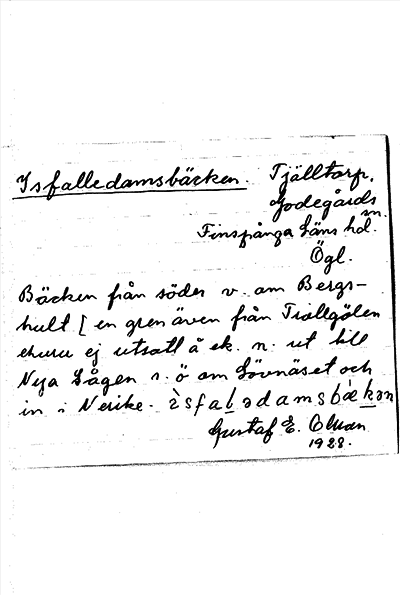 Isfalledamsbäcken. Tjälltorp.
Godegårds
sn.
Finspånga läns hd.
Ögl.
Bäcken från söder v. om Bergs-
hult [ en gren även från Trollgölen
ehuru ej utsatt å ek. n. ut till
Nya Sågen n. ö om Lövnäset och
in i Nerike. ìsfaḷədamsbækən
Gustaf E. Olson
1928.